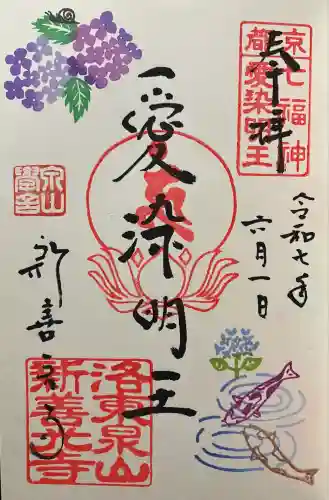 奉拝
京都
七福神
愛染明王
令和七年
六月一日
愛染明王
泉山
新善光寺
洛東泉山
新善光寺